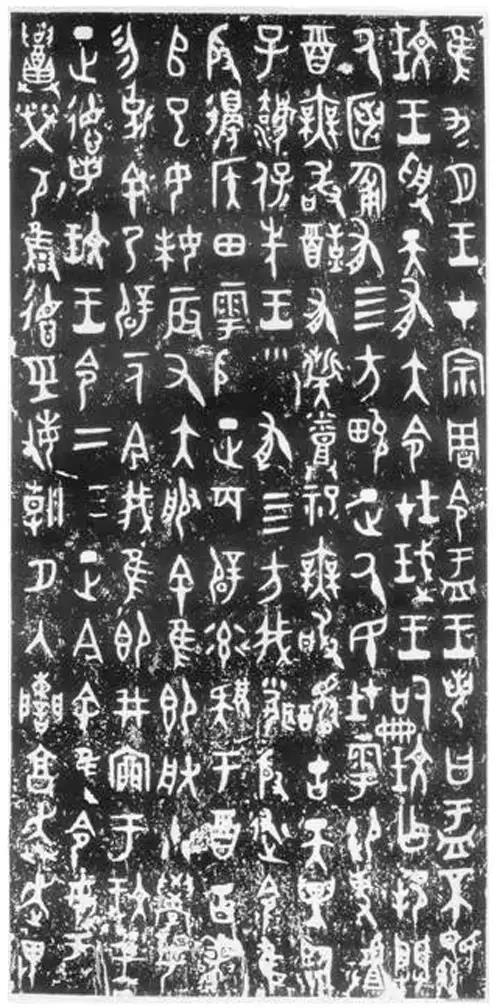 隹九月王才宗周令盂王若曰盂不顯
玟王受天有大令在珷王嗣玟乍邦闢
氒匿匍有四方畯正氒民在雩御事
酉無敢有烝祀無敢古天異臨
子灋保先王有四方我聞殷述令隹
殷邊侯田雩殷正百辟率肄于酉古喪
𠂤已女妹辰又大服余隹即朕小學女
勿克余乃辟一人今我隹即井㐭于玟王
正德若玟王令二三正今余隹令女盂
召榮敬雝德巠敏朝夕入讕享奔走畏